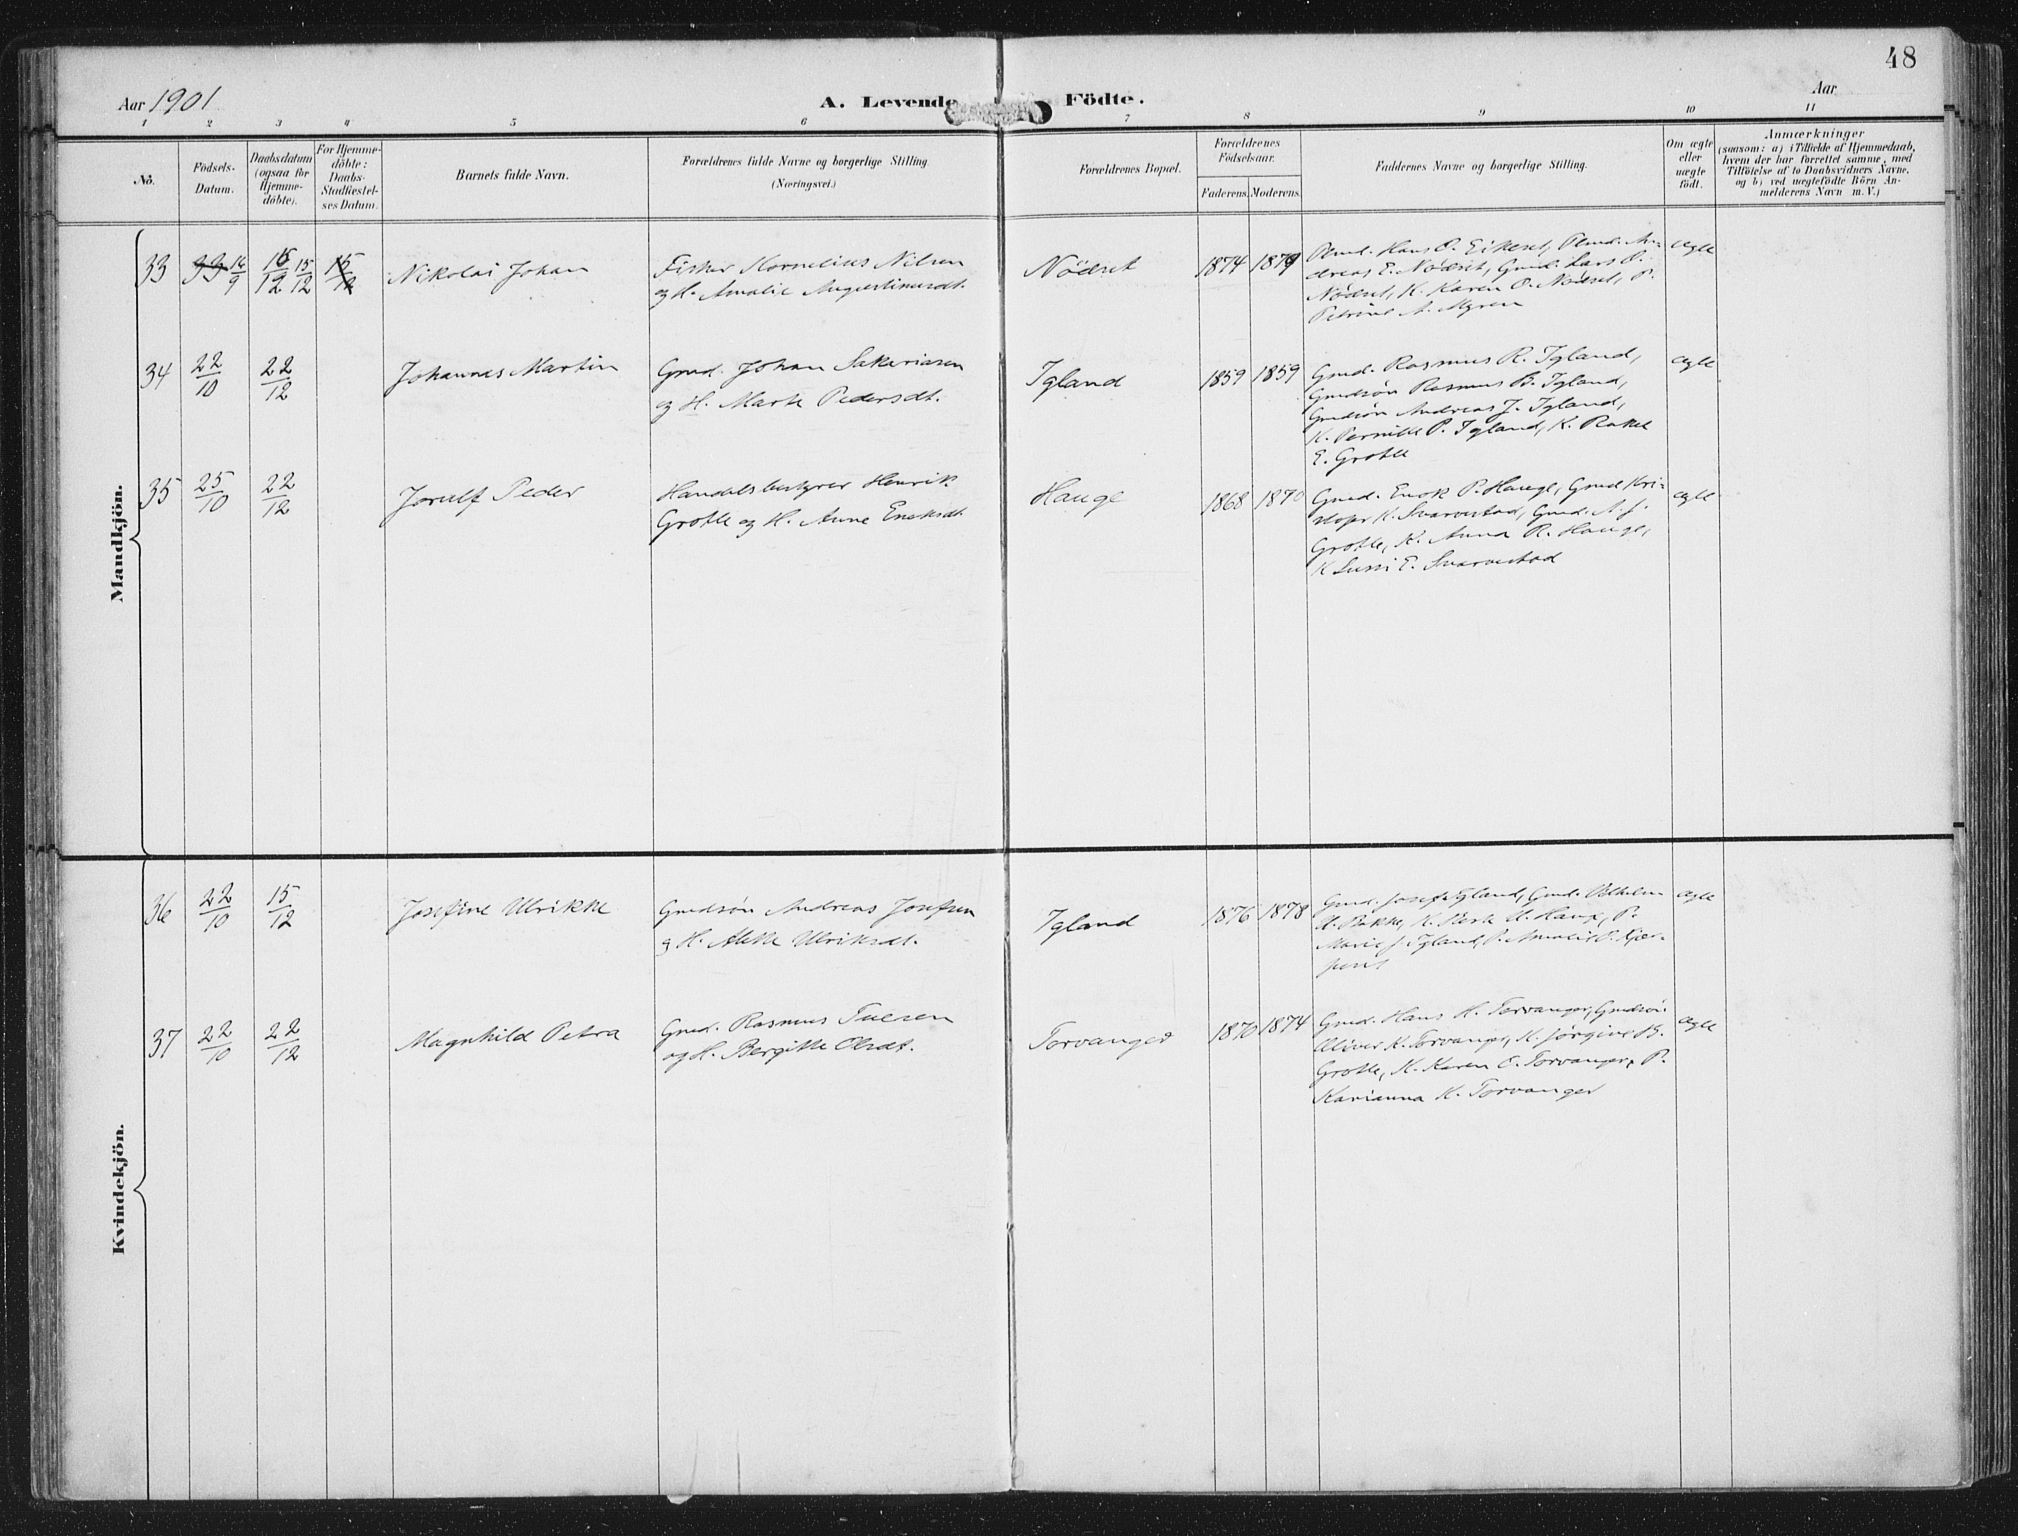 48
Aar 1901
A. Levende Födte.
Aar
1 2 3 4 5 6 7 8 9 10 11
No.
Födsels-
Datum.
Daabsdatum
(ogsaa for
Hjemme-
döbte).
For Hjemme-
döbte:
Daabs-
Stadfæstel-
ses Datum.
Barnets fulde Navn.
Forældrenes fulde Navne og borgerlige Stilling.
(Næringsvei.)
Forældrenes Bopæl.
Forældrenes
Födselsaar.
Faderens. Moderens.
Faddernes Navne og borgerlige Stilling.
Om ægte
eller
uægte
födt.
Anmærkninger
(saasom: a) i Tilfælde af Hjemmedaab,
hvem der har forrettet samme, med
Tilföielse af to Daabsvidners Navne,
og b) ved uægtefödte Börn An-
melderens Navn m. V.)
Mandkjön.
33 16/9 15/12 Nikolai Johan
Fisker Kornelius Nilsen
og H. Amalie Augustinusdt.
Nödset
1874 1879
Hans O. Eikeset, An-
dreas E. Nödset, Gmd. Lars P.
Nödset, K. Karen O. Nödset, P.
Petrine A. Myren
ægte
34 22/10 22/12 Johannes Martin
Gmd. Johan Sakariasen
og H. Marte Pedersdt.
Igland
1859 1859
Gmd. Rasmus R. Igland,
Gmdsön Rasmus B. Igland,
Gmdsön Andreas J. Igland,
K. Pernille P. Igland, K. Rakel
E. Grotle
ægte
35 25/10 22/12 Jorulf Peder
Handelsbestyrer Henrik
Grotle og H. Anne Enoksdt.
Hauge
1868 1870
Gmd. Enok P. Hauge, Gmd. Kri-
stofer K. Svarvestad, Gmd. A. J.
Grotle, K. Anna R. Hauge,
K. Lussi E. Svarvestad
ægte
Kvindekjön.
36 22/10 15/12 Josefine Ulrikke
Gmdsön Andreas Josefsen
og H. Ulriksdt.
Igland
1876 1878
Gmd. Josef Igland, Gmd. Vilhelm
U. Bakke, K. U. P.
Marie J. Igland, P. Amalie
ægte
37 22/10 22/12 Magnhild Petra
Gmd. Rasmus
og H. Bergitte Olsdt.
Torvanger
1870 1874
Gmd. Hans H. Torvanger, Gmdsön
Oliver K. Torvanger, K. Jörgine B.
Grotle, K. Karen O. Torvanger, P.
Karianna K. Torvanger
ægte